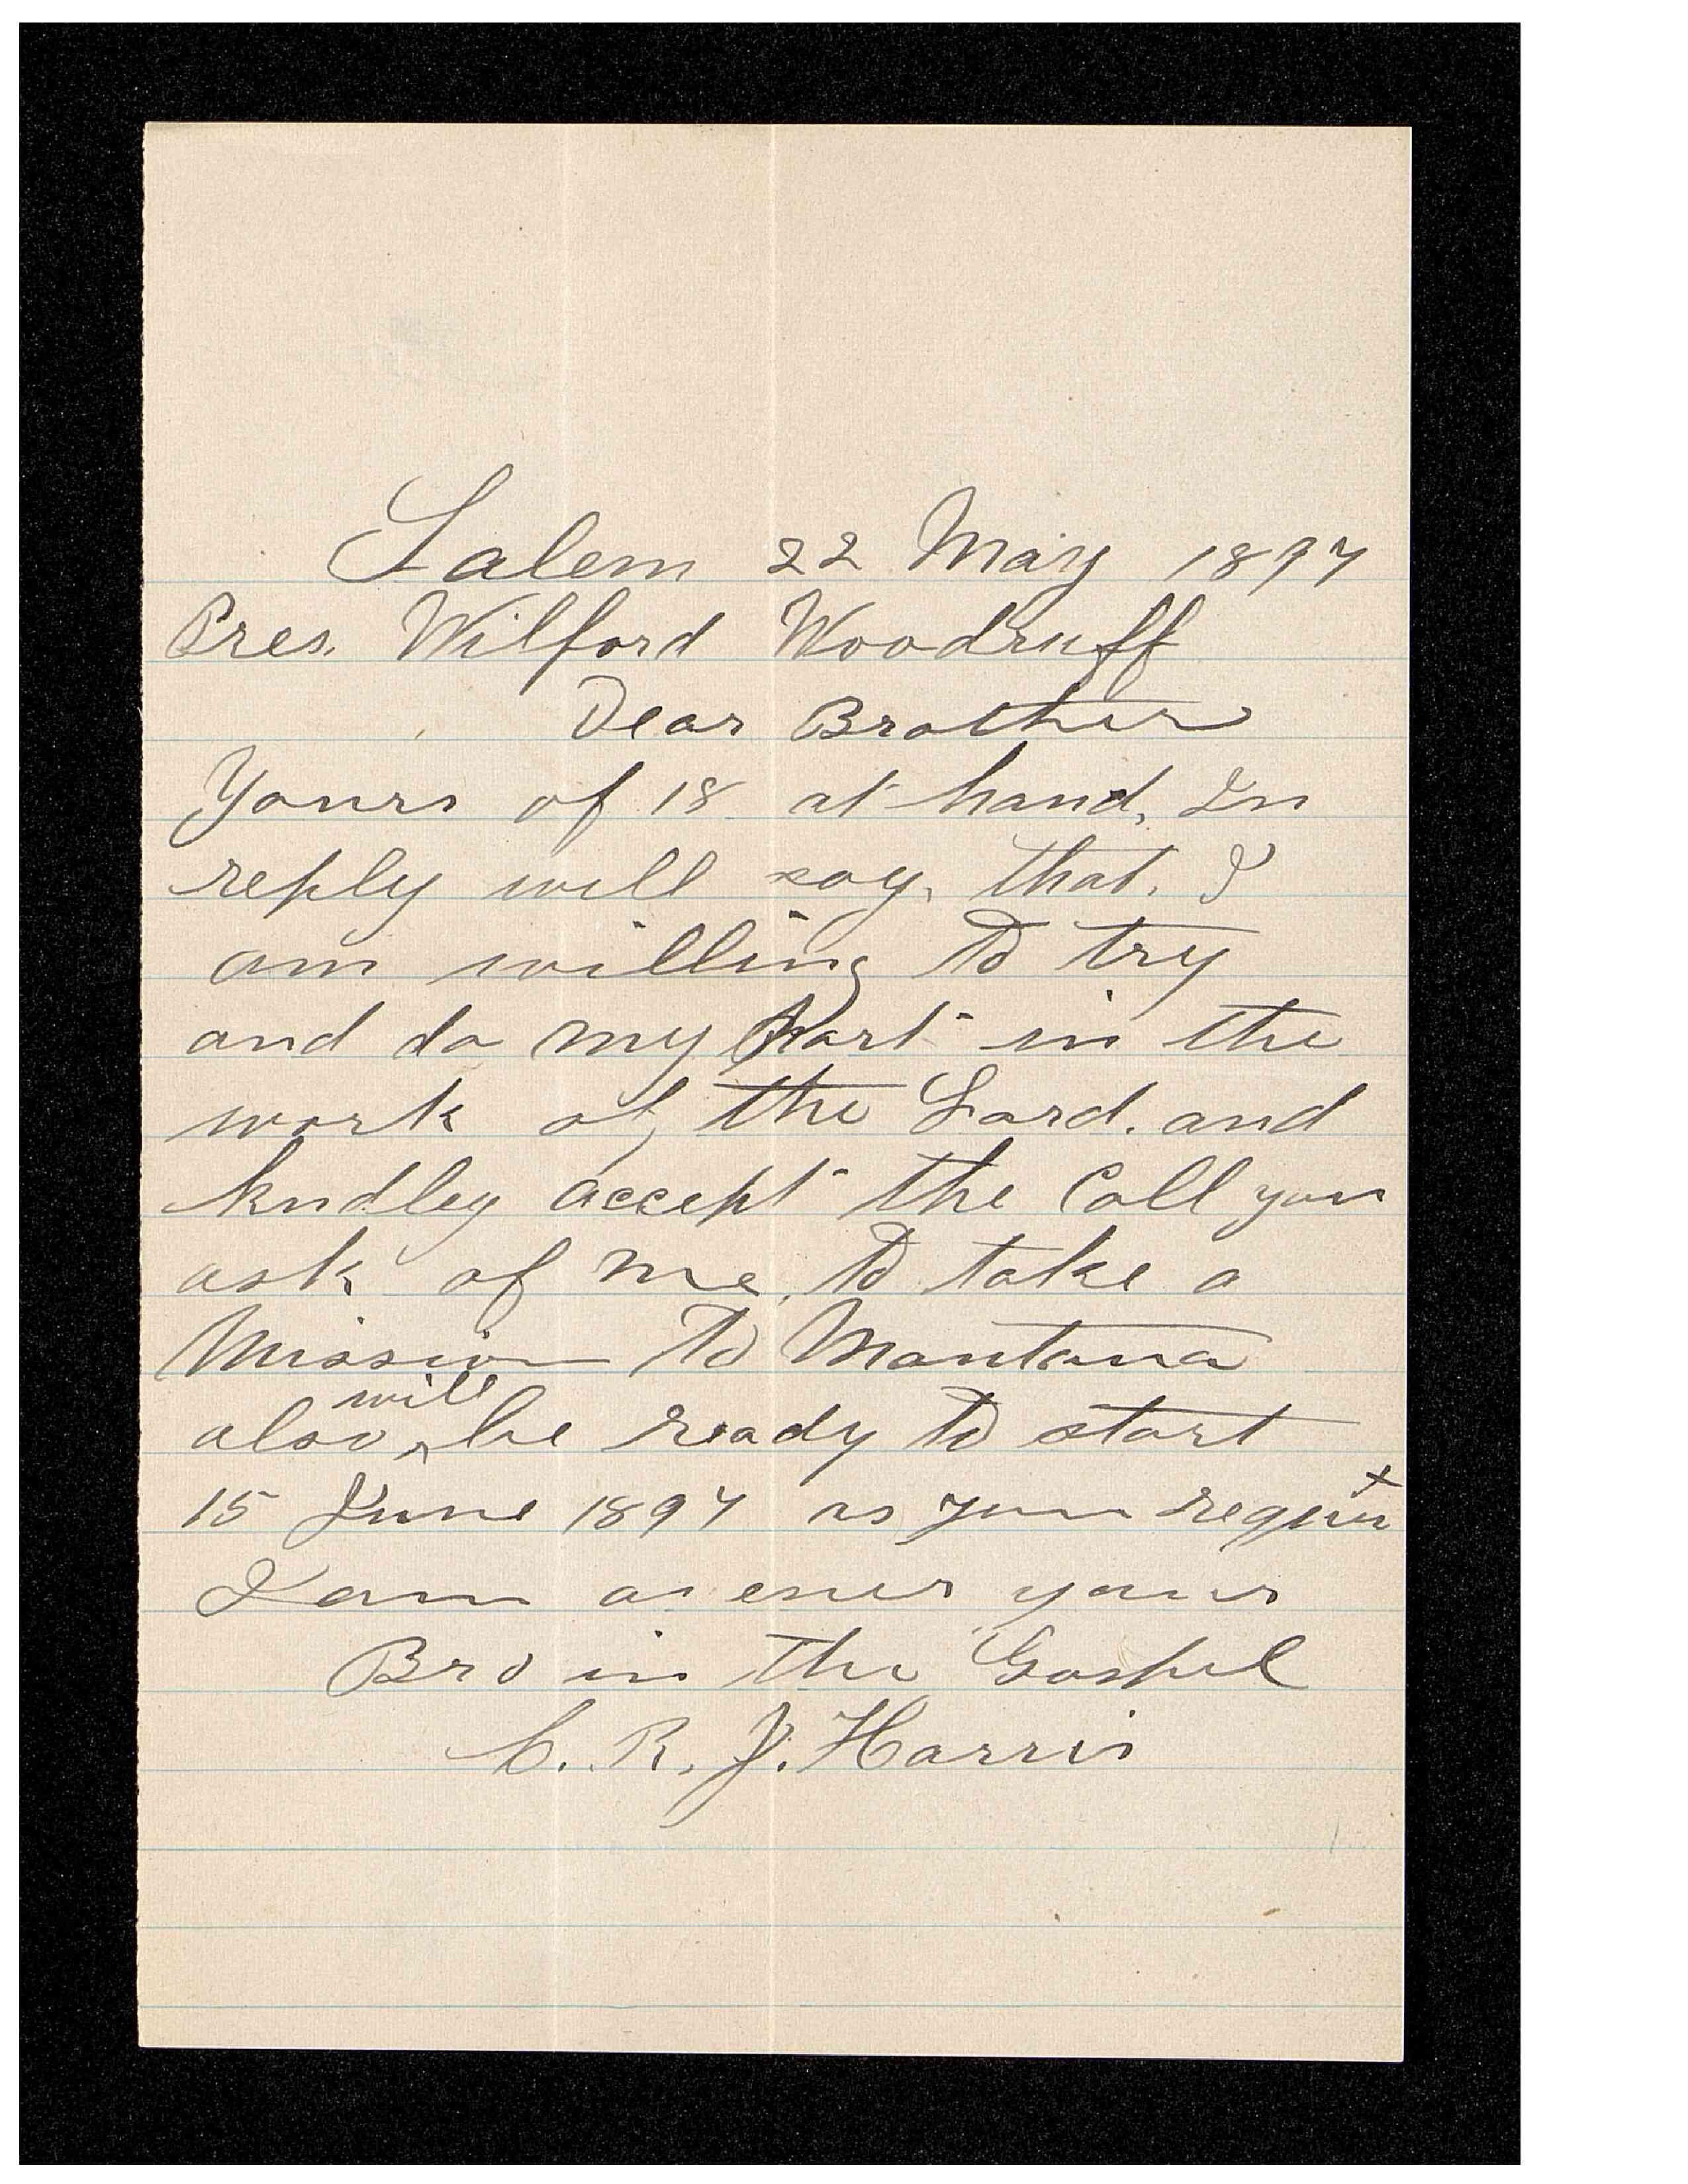 Salem 22 May 1897
Pres. Wilford Woodruff
Dear Brother
Yours of 18 at hand, In
reply will say, that, I
am willing to try
and do my part in the
work of the Lord. and
kndley accept the Call you
ask of me, to take a
Mission to Montana
will
also ^ be ready to start
15 June 1897 as you
I am as ever yours
Bro in the Gospel
C. R. J. Harris